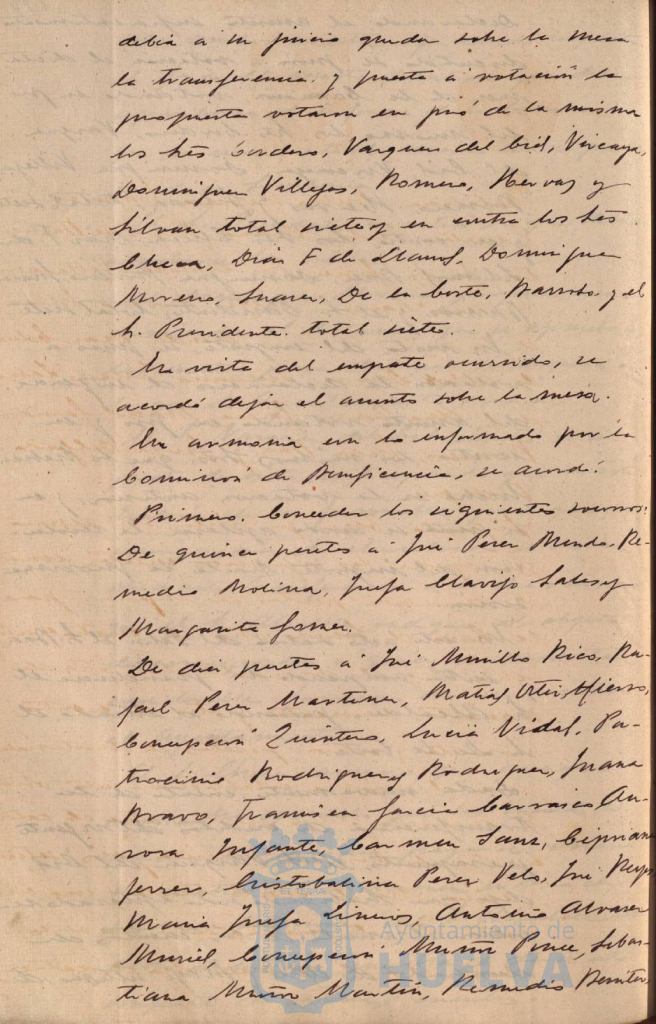 debia a su juicio quedar sobre la mesa
la transferencia y puesta á votación la
propuesta votaron en pró de la misma
los Srs Cordero, Vazquez del Cid, Vizcaya,
Dominguez Villegas, Romero, Hervas y
Silvan total siete y en contra los Srs
Checa, Diaz F de Llanos, Dominguez
Moreno, Suarez, De la Corte, Barroso y el
Sr. Presidente total siete.
En vista del empate ocurrido, se
acordó dejar el asunto sobre la mesa.
En armonia con lo informado por la
Comision de Beneficencia, se acordó:
Primero. Conceder los siguientes socorros:
De quince pesetas á José Perez Mendo, Re-
medio Molina, Josefa Clavijo Sales y
Margarita
De diez pesetas á José Murillo Rico, Ra-
fael Perez Martinez, Matias Ortiz Hierro,
Concepcion Quintero, Lucia Vidal, Pa-
trocinio Rodriguez y Rodriguez, Juana
Bravo, Francisca Garcia Carrasco, Au-
rora Infante, Carmen Sanz, Cipriana
Ferrer, Cristobalina Perez Vela, José
Maria Josefa Lineros, Antonio Alvarez
Muriel, Concepcion Muñoz Ponce, Sebas-
tiana Muñoz Martin, Remedio Benitez,
Ayuntamiento de
HUELVA